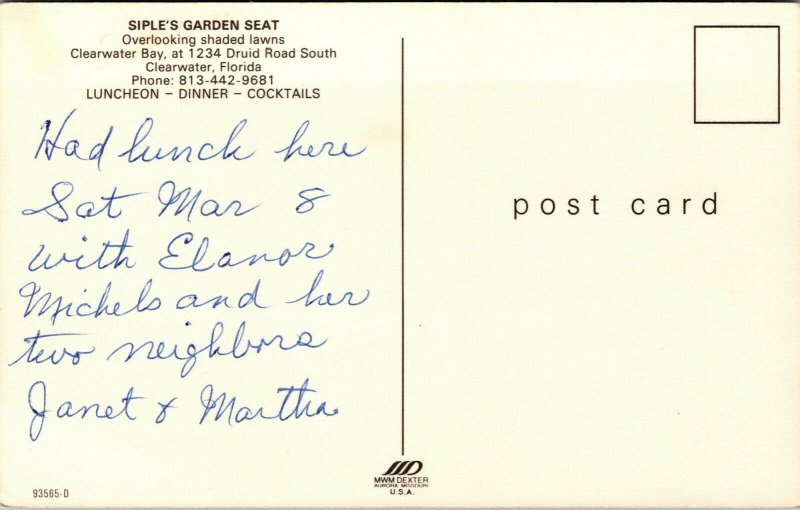 SIPLE'S GARDEN SEAT
Overlooking shaded lawns
Clearwater Bay, at 1234 Druid Road South
Clearwater, Florida
Phone: 813-442-9681
LUNCHEON – DINNER – COCKTAILS
Had lunch here
Sat Mar 8
with Elanor
Michels and her
two neighbors
Janet & Martha
post card
MWM DEXTER
AURORA MISSOURI
U.S.A.
93565-D